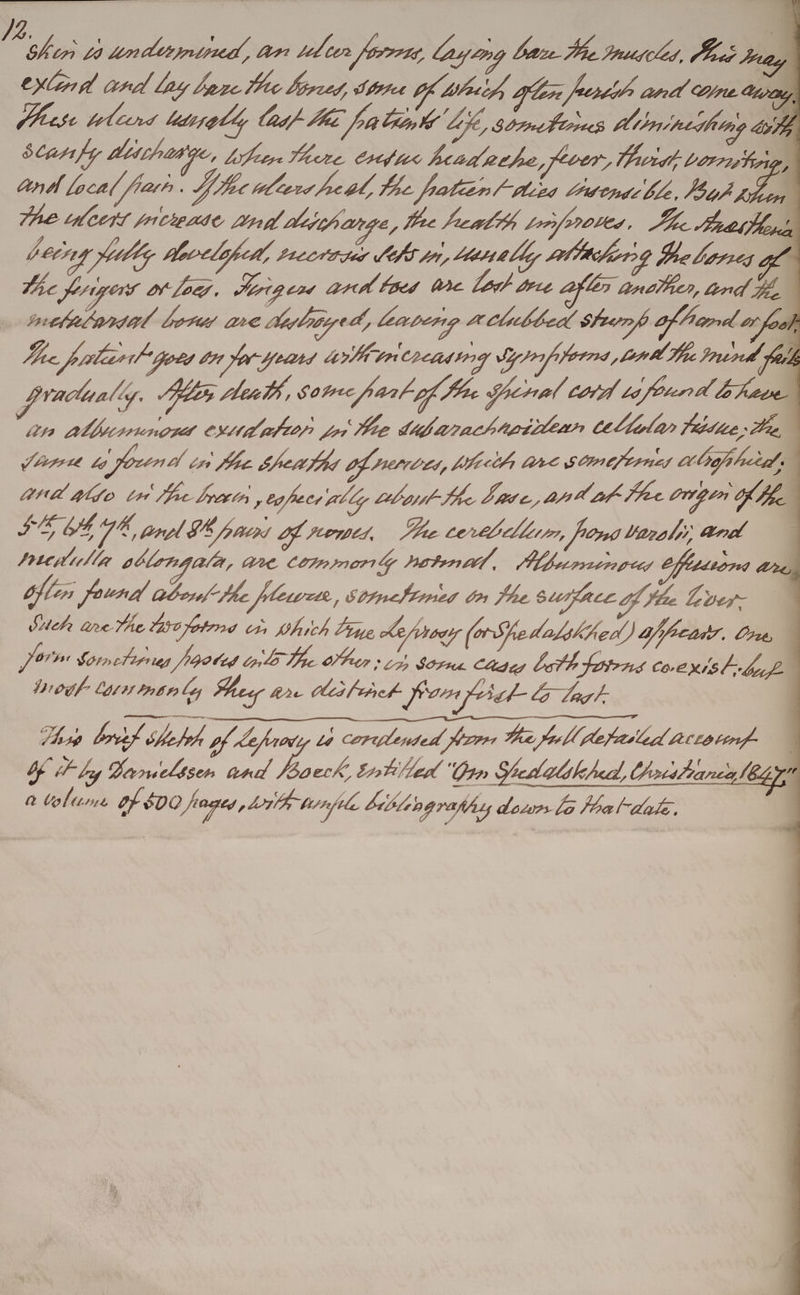 12.
Skin is undermined, an ulcer forms, laying bare the muscles. This may
extend and lay bare the bones, some of which often perish and come away.
These ulcers usually last the patients' life, sometimes diminishing with
scanty discharge, when there ensue headache, fever, thirst, vomiting,
and local pain. If the ulcers heal, the patient dies insensible. But when
the ulcers increase and discharge, the health improves. The Anaesthesia
being fully developed, necrosis sets in, usually attacking the bones of
the fingers or toes. Fingers and toes are lost one after another, and the
metatarsal bones are destroyed, leaving a clubbed stump of hand or foot.
The patient goes on for years with increasing symptoms, and the mind fails
gradually. After death, some part of the Spinal cord is found to have
an albuminous exudation in the subarachnoidean cellular tissue; the
same is found in the sheaths of nerves, which are sometimes atrophied;
and also in the brain, especially about the base, and at the origin of the
5th, 6th, 7th, and 8th pairs of nerves. The cerebellum, pons Varolii, and
medulla oblongata, are commonly natural. Albuminous effusions are
often found about the pleurae, sometimes on the surface of the liver.
Such are the two forms in which true Leprosy (or Spedalskhed) appears. One
form sometimes passes into the other; in some cases both forms co-exist; but
most commonly they are distinct from first to last.
This brief sketch of Leprosy is condensed from the full detailed account
of it by Danielssen and Boeck, entitled "Om Spedalskhed, Christiania, 1847,"
a volume of 500 pages, with ample bibliography down to that date.